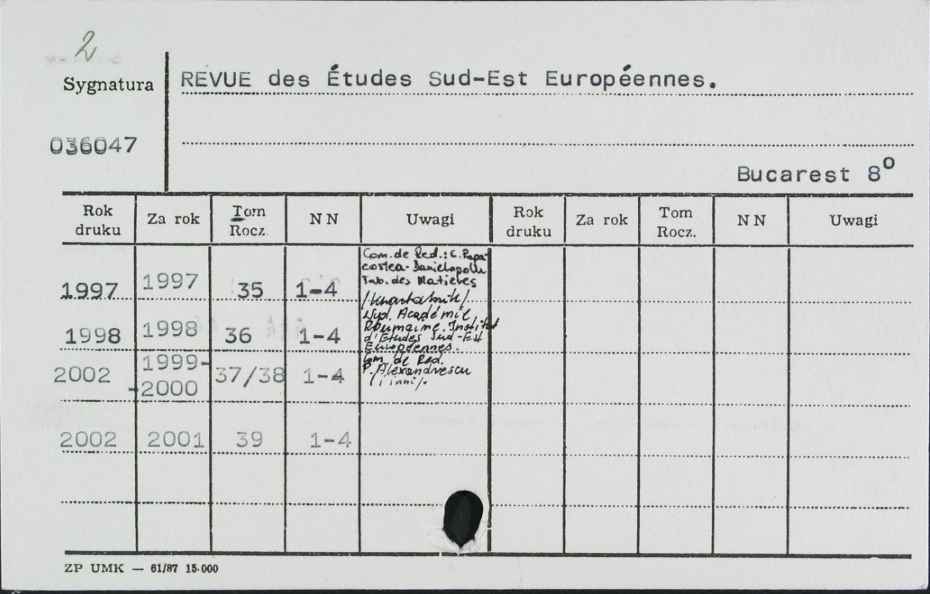 2
Sygnatura
REVUE des Études Sud-Est Européennes.
036047
Bucarest 8°
Rok druku Za rok Tom Rocz. N N Uwagi Rok druku Za rok Tom Rocz. N N Uwagi
1997 1997 35 1-4
1998 1998 36 1-4
2002 1999-2000 37/38 1-4
2002 2001 39 1-4
Com. de Red.: C. Papa-
costea-Danielopolu
Tab. des Matières
/Kwartalnik/
Wyd. Académie
Roumaine. Institut
d'Études Sud-Est
Européennes.
Com. de Red.
P. Alexandrescu
/i inni/.
ZP UMK — 61/87 15.000